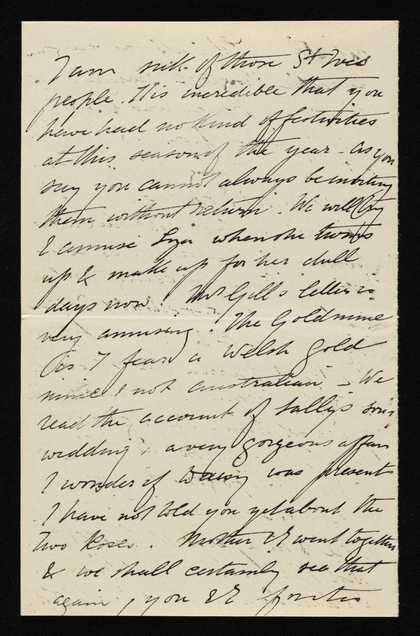 I am sick of those St Ives
people. It is incredible that you
have had no kind of festivities
at this season of the year - as you
say you cannot always be inviting
them without return. We will try
& amuse when she turns
up & make up for her dull
days now Mr Gill's letter is
very amusing. The Goldmine
is I fear a Welsh gold
mine & not Australian - We
read the account of Sally's son's
wedding, a very gorgeous affair
I wonder if was present
I have not told you yet about the
Two Roses. Mother & I went together
& we shall certainly see that
again, you & I for it is